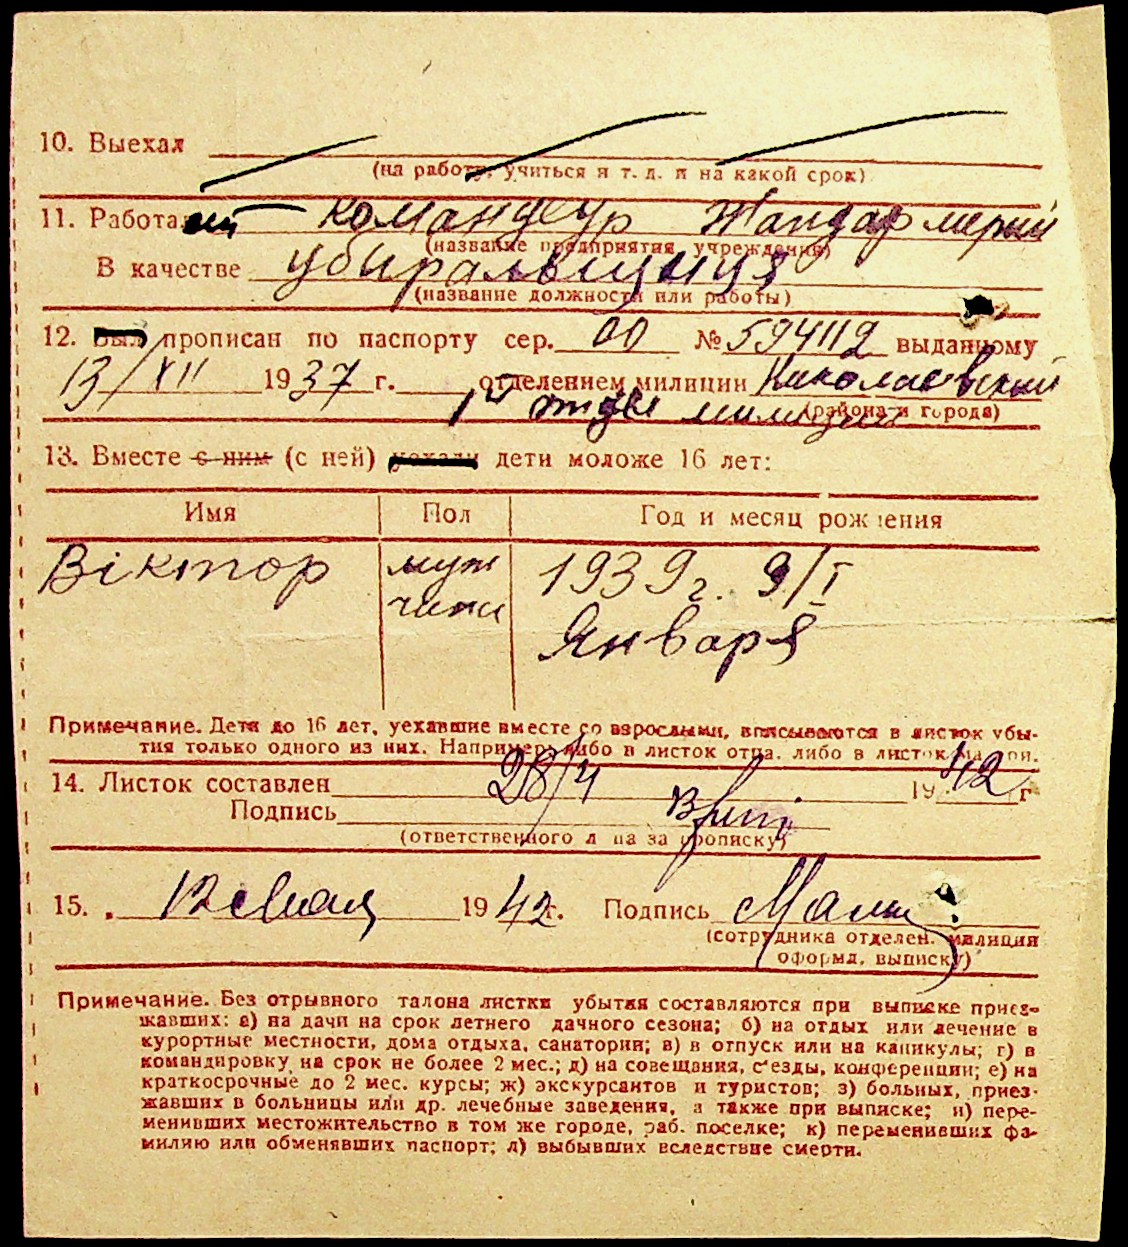 10. Выехал
(на работу, учиться и т. д. и на какой срок)
11. Работает командир Жандармерий
(название предприятия, учреждения)
В качестве убиральщиця
(название должности или работы)
12. был прописан по паспорту сер. № 594112 выданному
13/XII 1937 г. отделением милиции Николаевский
(района и города)
милиции
13. Вместе с ним (с ней) уехали дети моложе 16 лет:
Имя Пол Год и месяц рождения
Віктор муж 1939 г. 9/I
чина Января
Примечание. Дети до 16 лет, уехавшие вместе со взрослыми, вписываются в листок убы-
тия только одного из них. Например: либо в листок отца, либо в листок матери.
14. Листок составлен 28/4 1942 г
Подпись
(ответственного лица за прописку)
15. „ 12 мая 1942 г. Подпись
(сотрудника отделен. милиции
оформл. выписку)
Примечание. Без отрывного талона листки убытия составляются при выписке приез-
жавших: а) на дачи на срок летнего дачного сезона; б) на отдых или лечение в
курортные местности, дома отдыха, санатории; в) в отпуск или на каникулы; г) в
командировку на срок не более 2 мес.; д) на совещания, съезды, конференции; е) на
краткосрочные до 2 мес. курсы; ж) экскурсантов и туристов; з) больных, приез-
жавших в больницы или др. лечебные заведения, а также при выписке; и) пере-
менивших местожительство в том же городе, раб. поселке; к) переменивших фа-
милию или обменявших паспорт; л) выбывших вследствие смерти.